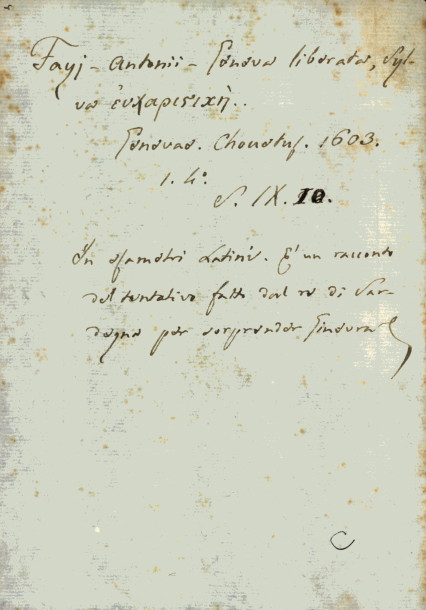 Fayj - Antonii - Geneva liberata, Syl-
va ἐυχαριστικὴ..
Genevae. Chouetus. 1603.
1. 4°.
S. IX. 10.
In esametri Latini. E' un racconto
del tentativo fatto dal re di Sar-
degna per sorprender Ginevra
C